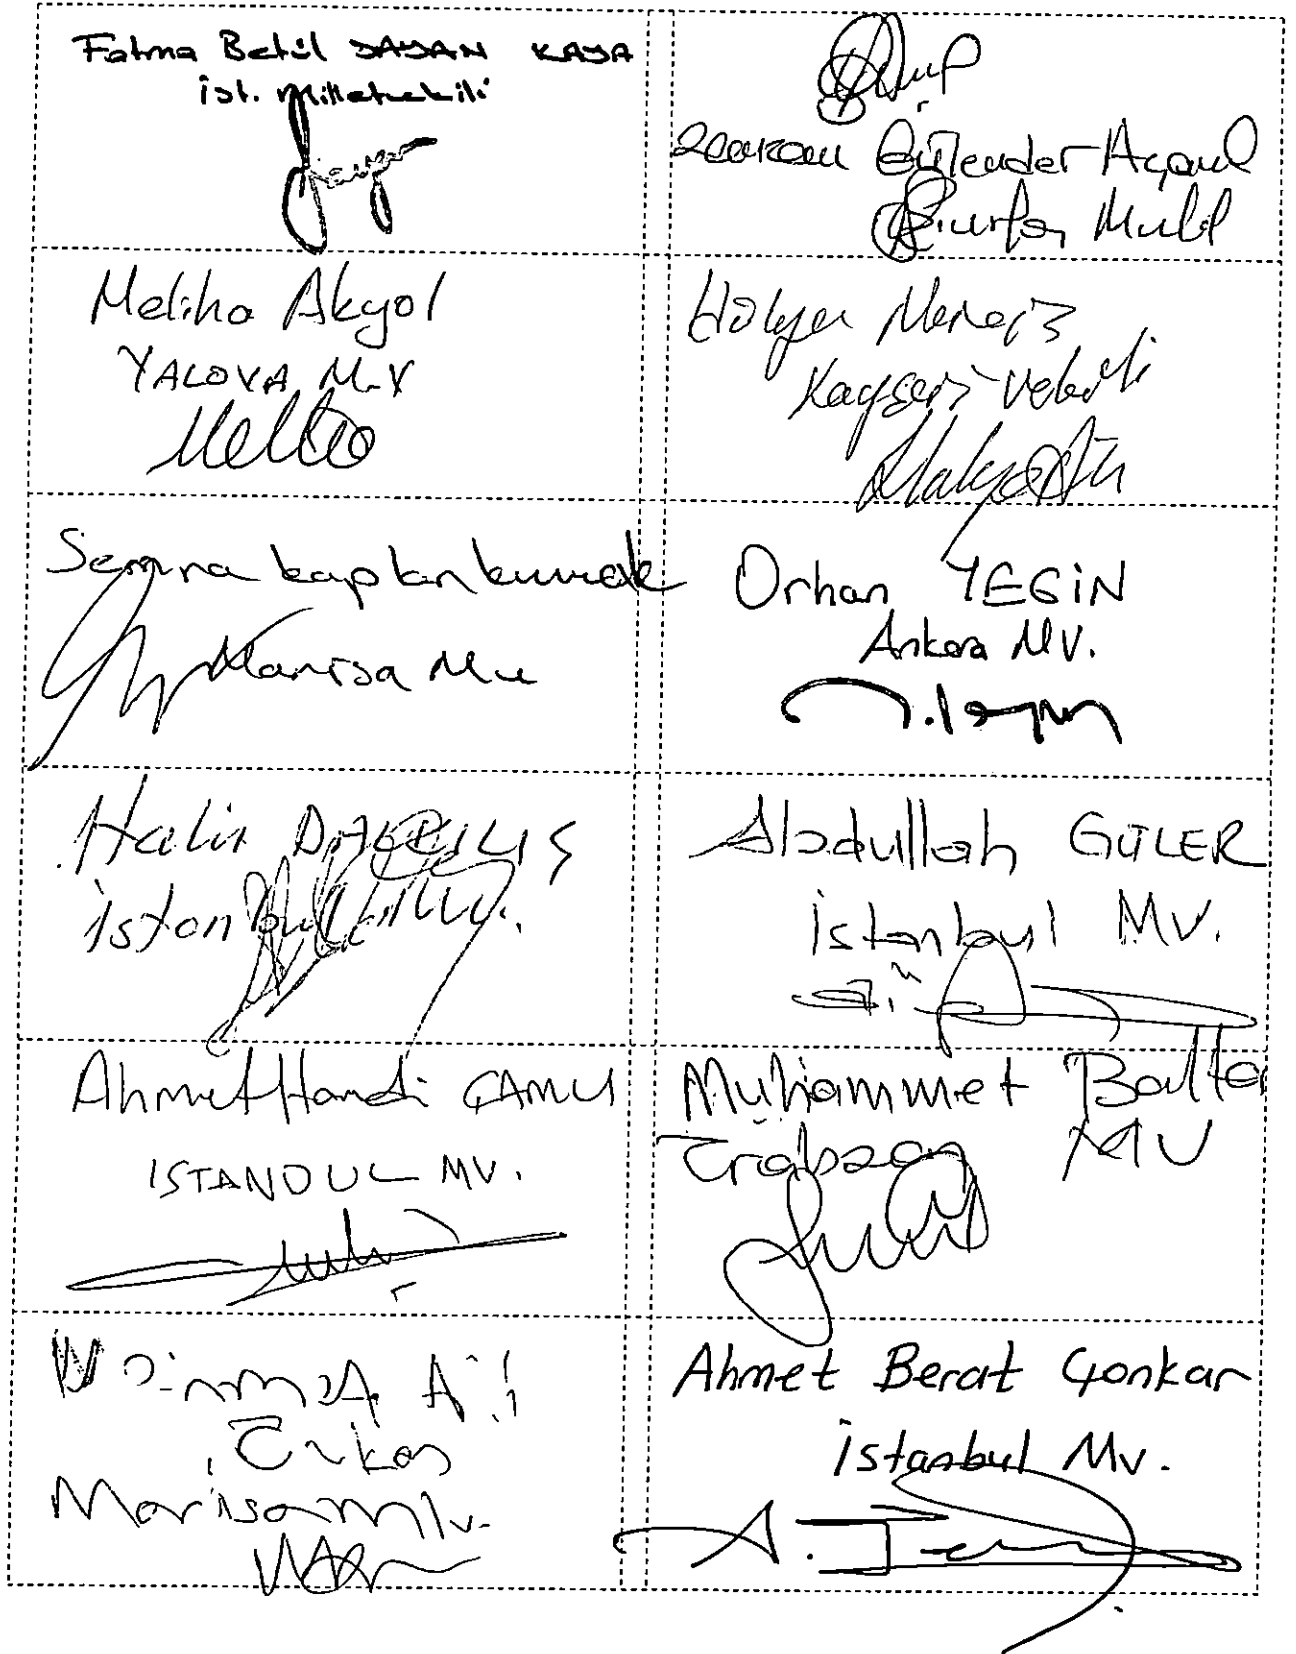 Fatma Betül SAYAN KAYA
ist. Milletvekili
Gülender Açanal
Ş.urfa Mv
Meliha Akyol
YALOVA M.V
Hülya Nergis
Kayseri Vekili
Semra kaplan kıvırcık
Manisa Mv
Orhan YEGİN
Ankara MV.
Halis DALKILIÇ
istanbul Mv.
Abdullah GÜLER
istanbul MV.
Ahmet Hamdi ÇAMLI
ISTANBUL MV.
Muhammet Balta
Trabzon MV
Ali
Özkan
Manisa Mv.
Ahmet Berat Çonkar
istanbul Mv.